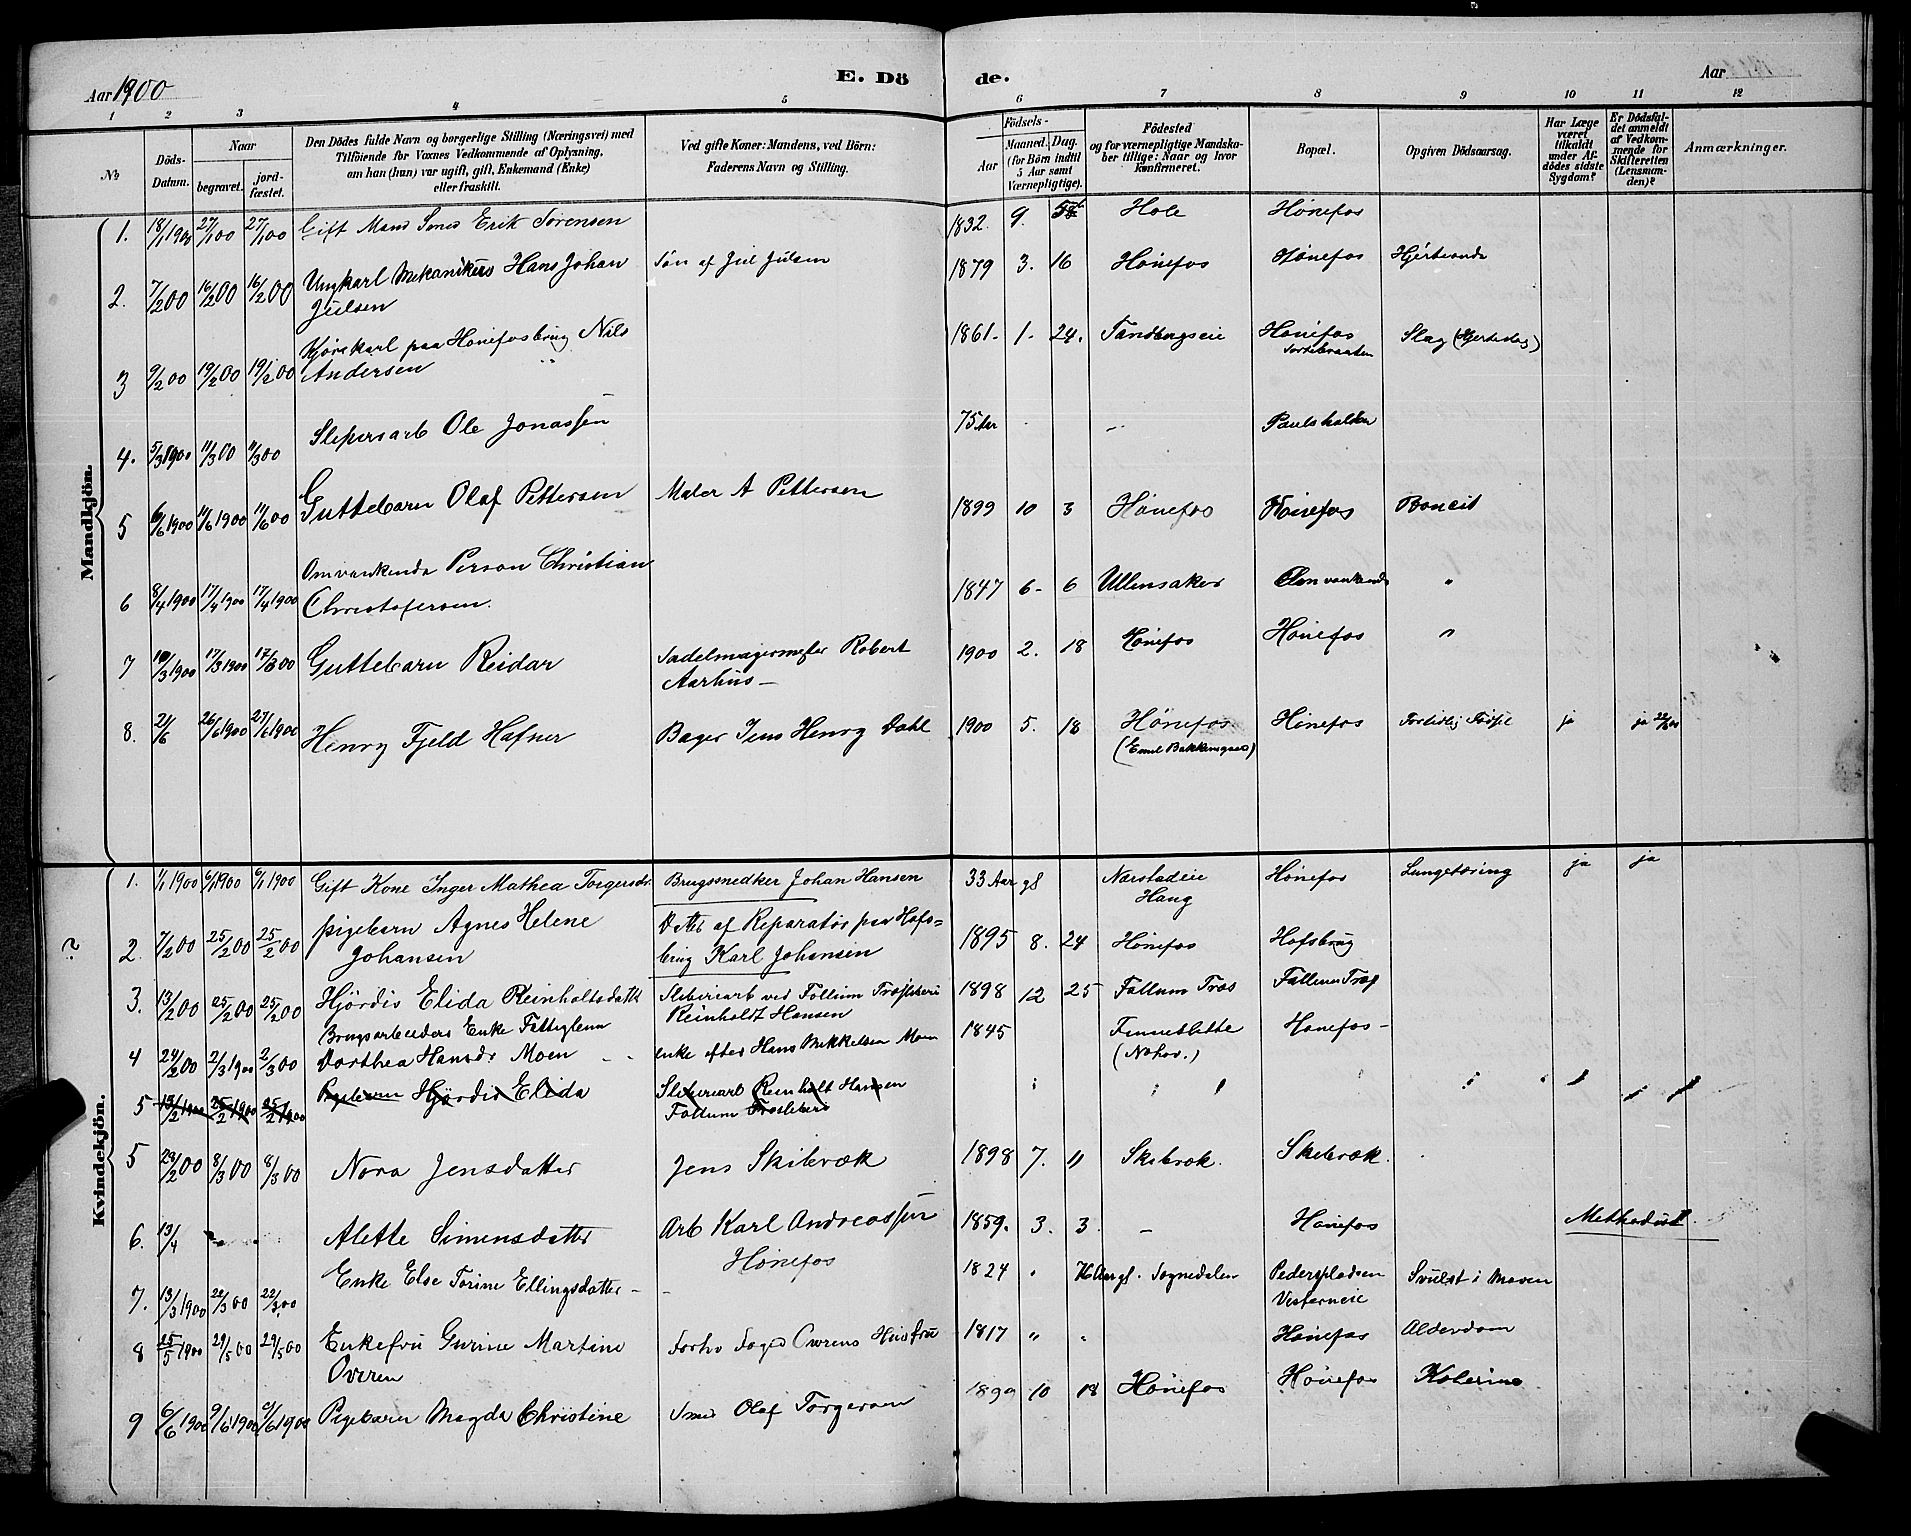 Aar 1900
E. Dö
de.
Aar
1 2 3 4 5 6 7 8 9 10 11 12
№
Döds-Datum.
Naar
begravet.
jord-fæstet.
Den Dödes fulde Navn og borgerlige Stilling (Næringsvei) med
Tilföiende for Voxnes Vedkommende af Oplysning,
om han (hun) var ugift, gift, Enkemand (Enke)
eller fraskilt.
Ved gifte Koner: Mandens, ved Börn:
Faderens Navn og Stilling.
Födsels-
Aar
Maaned. Dag.
(for Börn indtil
5 Aar samt
Værnepligtige).
Födested
og for værnepligtige Mandska-
ber tillige: Naar og hvor
konfirmeret.
Bopæl.
Opgiven Dödsaarsag.
Har Læge
været
tilkaldt
under Af-
dödes sidste
Sygdom?
Er Dödsfal-
det anmeldt
af Vedkom-
mende for
Skifteretten
(Lensman-
den)?
Anmærkninger.
Mandkjön.
1. 18/1 1900 27/1 00 27/1 00 Gift Mand Smed Erik Sørensen 1832. 9. Hole Hønefos
2. 7/2 00 16/2 00 16/2 00 Ungkarl Mekanikers Hans Johan Søn af Juel Julsen 1879 3. 16 Hønefos Hønefos
Julsen
3 9/2 00 19/2 00 19/2 00 Kjørekarl paa Hønefosbrug Nils 1861 - 1 - 24. Tandbergseie Hønefos Slag
Andersen
4. 5/3 1900 11/3 00 11/3 00 Sliperiarb Ole Jonassen 75 Aar Paulshalden
5 6/6 1900 14/6 1900 14/6 00 Guttebarn Olaf Pettersen Maler A Pettersen 1899 10 3 Hønefos Hønefos
6 8/4 1900 17/4 1900 17/4 1900 Omvankende Person Christian 1847 6 - 6 Ullensaker Omvankende "
Christofersen.
7 10/3 1900 17/3 1900 17/3 00 Guttebarn Reidar Sadelmagermester Robert 1900 2. 18 Hønefos Hønefos "
Aarhus -
8. 21/6 26/6 1900 27/6 1900 Henry Fjeld Hafner Bager Jens Henry Dahl 1900 5. 18 Hønefos Hønefos Fortidlig Fødsel ja ja 22/6 00
Kvindekjön.
1. 1/1 1900 6/1 1900 6/1 1900 Gift Kone Inger Mathea Torgersdr. Brugssnedker Johan Hansen 33 Aar gl Nærstadeie Hønefos Lungetæring ja ja
Haug
?
2. 7/2 00 25/2 00 25/2 00 Pigebarn Agnes Helene Datter af Reparatør paa Hofs- 1895 8. 24 Hønefos Hofsbrug
Johansen brug Karl Johansen
3. 13/2 00 25/2 00 25/2 00 Hjørdis Elida Reinholtsdatter Sliberiarb ved Follum Træsliberi 1898 12 25 Follum Træs Follum Træs
Reinholdt Hansen
4 24/2 00 2/3 1900 2/3 00 Brugsarbeiders Enke Fattiglem 1845 Hønefos -
Dorthea Hansdr Moen enke efter Hans Mikkelsen Moen
5 13/2 1900 25/2 1900 25/2 1900 Pigebarn Hjørdis Elida Sliberiarb Reinholt Hansen
Follum Træsliberi
5 24/2 00 8/3 00 8/3 00 Nora Jensdatter Jens Skibræk 1898 7. 11 Skibræk. Skibræk.
6. 13/4 Alette Simensdatter Arb Karl Andreassen 1859. 3. 3. - Hønefos Methodist
Hønefos
7. 13/3 1900 22/3 00 22/3 00 Enke Else Torine Ellingsdatter - 1824 Sognedalen Pederspladsen Svulst i Maven
Vesterneie
8 25/5 1900 29/5 00 29/5 00 Enkefru Gurine Martine Hustru 1817 " " Hønefos Alderdom
Owren
9 6/6 1900 9/6 1900 9/6 1900 Pigebarn Magda Christine Smed Olaf Torgersen 1899 10 18 Hønefos Hønefos Kolerine